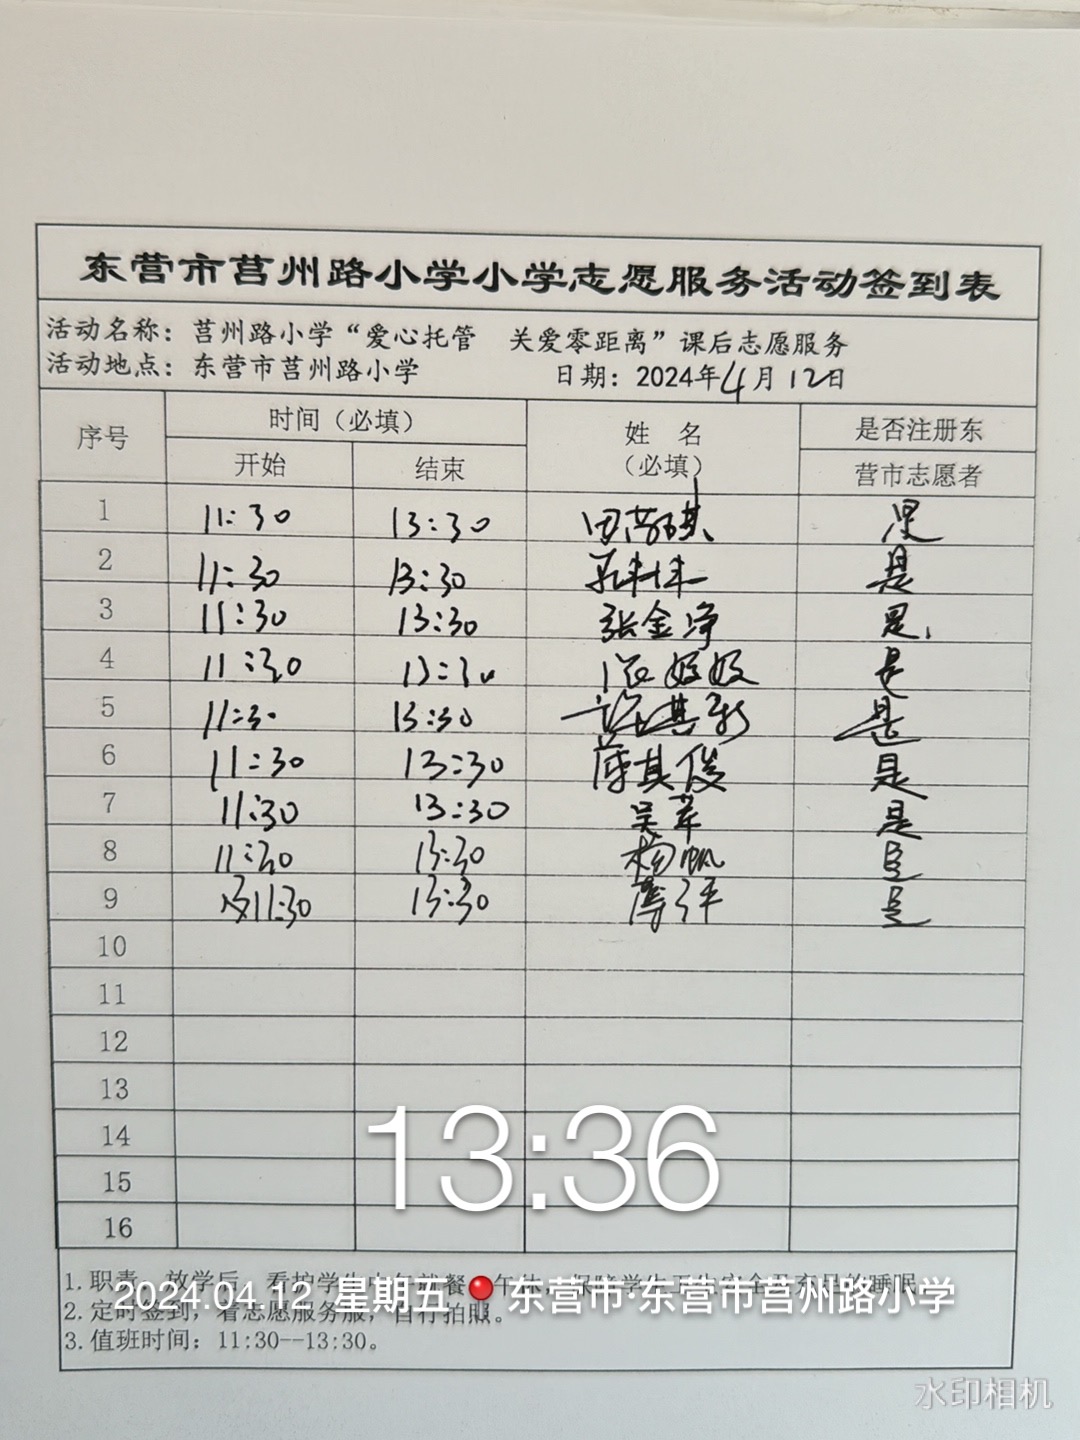 东营市莒州路小学小学志愿服务活动签到表
活动名称：莒州路小学“爱心托管 关爱零距离”课后志愿服务
活动地点：东营市莒州路小学 日期：2024年4月12日
序号 时间（必填） 姓 名（必填） 是否注册东营市志愿者
开始 结束
1 11:30 13:30 是
2 11:30 13:30 是
3 11:30 13:30 张金净 是
4 11:30 13:30 是
5 11:30 13:30 许其彩 是
6 11:30 13:30 薛其俊 是
7 11:30 13:30 吴苹 是
8 11:30 13:30 杨帆 是
9 11:30 13:30 是
10
11
12
13
14
15
16
13:36
1.职责：放学后，看护学生
2024.04.12 星期五 东营市·东营市莒州路小学
2.定时签到，着志愿服务服，自行拍照。
3.值班时间：11:30--13:30。
水印相机